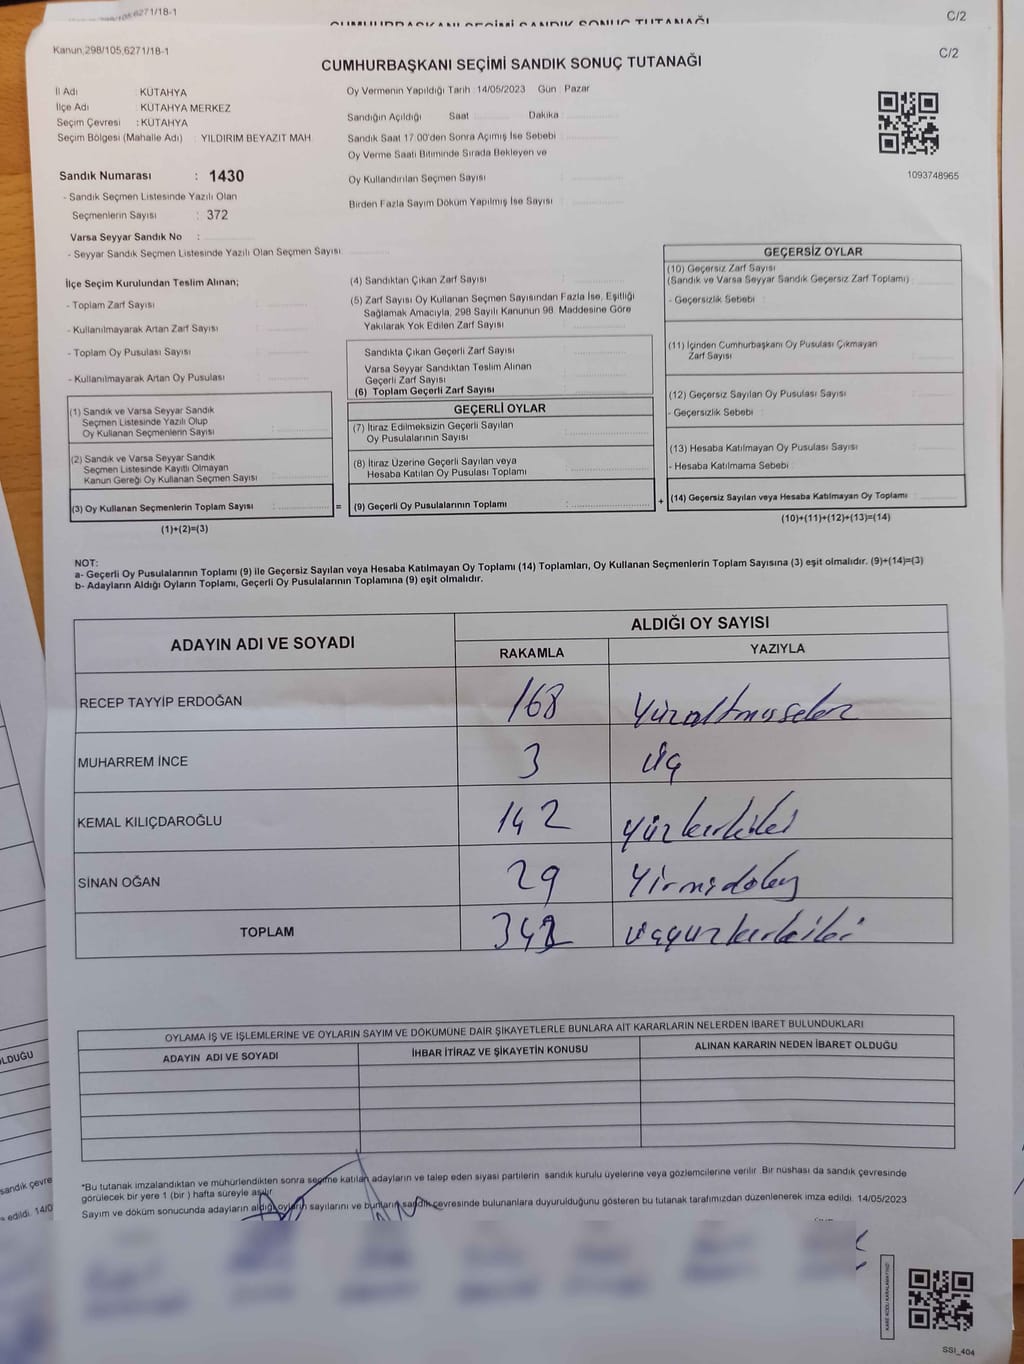 Kanun,298/105,6271/18-1
C/2
Kanun,298/105,6271/18-1
C/2
CUMHURBAŞKANI SEÇİMİ SANDIK SONUÇ TUTANAĞI
İl Adı : KÜTAHYA
İlçe Adı : KÜTAHYA MERKEZ
Seçim Çevresi : KÜTAHYA
Seçim Bölgesi (Mahalle Adı) : YILDIRIM BEYAZIT MAH.
Oy Vermenin Yapıldığı Tarih : 14/05/2023 Gün : Pazar
Sandığın Açıldığı Saat Dakika :
Sandık Saat 17:00'den Sonra Açımış İse Sebebi :
Oy Verme Saati Bitiminde Sırada Bekleyen ve
Oy Kullandırılan Seçmen Sayısı :
Birden Fazla Sayım Döküm Yapılmış İse Sayısı :
1093748965
Sandık Numarası : 1430
- Sandık Seçmen Listesinde Yazılı Olan
Seçmenlerin Sayısı : 372
Varsa Seyyar Sandık No :
- Seyyar Sandık Seçmen Listesinde Yazılı Olan Seçmen Sayısı
İlçe Seçim Kurulundan Teslim Alınan;
- Toplam Zarf Sayısı :
- Kullanılmayarak Artan Zarf Sayısı :
- Toplam Oy Pusulası Sayısı :
- Kullanılmayarak Artan Oy Pusulası :
(1) Sandık ve Varsa Seyyar Sandık
Seçmen Listesinde Yazılı Olup
Oy Kullanan Seçmenlerin Sayısı :
(2) Sandık ve Varsa Seyyar Sandık
Seçmen Listesinde Kayıtlı Olmayan
Kanun Gereği Oy Kullanan Seçmen Sayısı :
(3) Oy Kullanan Seçmenlerin Toplam Sayısı :
(1)+(2)=(3)
=
(4) Sandıktan Çıkan Zarf Sayısı :
(5) Zarf Sayısı Oy Kullanan Seçmen Sayısından Fazla İse, Eşitliği
Sağlamak Amacıyla, 298 Sayılı Kanunun 98. Maddesine Göre
Yakılarak Yok Edilen Zarf Sayısı :
Sandıkta Çıkan Geçerli Zarf Sayısı :
Varsa Seyyar Sandıktan Teslim Alınan
Geçerli Zarf Sayısı
(6) Toplam Geçerli Zarf Sayısı :
GEÇERLİ OYLAR
(7) İtiraz Edilmeksizin Geçerli Sayılan
Oy Pusulalarının Sayısı :
(8) İtiraz Üzerine Geçerli Sayılan veya
Hesaba Katılan Oy Pusulası Toplamı :
(9) Geçerli Oy Pusulalarının Toplamı :
+
GEÇERSİZ OYLAR
(10) Geçersiz Zarf Sayısı
(Sandık ve Varsa Seyyar Sandık Geçersiz Zarf Toplamı) :
- Geçersizlik Sebebi :
(11) İçinden Cumhurbaşkanı Oy Pusulası Çıkmayan
Zarf Sayısı :
(12) Geçersiz Sayılan Oy Pusulası Sayısı :
- Geçersizlik Sebebi :
(13) Hesaba Katılmayan Oy Pusulası Sayısı :
- Hesaba Katılmama Sebebi :
(14) Geçersiz Sayılan veya Hesaba Katılmayan Oy Toplamı :
(10)+(11)+(12)+(13)=(14)
NOT:
a- Geçerli Oy Pusulalarının Toplamı (9) ile Geçersiz Sayılan veya Hesaba Katılmayan Oy Toplamı (14) Toplamları, Oy Kullanan Seçmenlerin Toplam Sayısına (3) eşit olmalıdır. (9)+(14)=(3)
b- Adayların Aldığı Oyların Toplamı, Geçerli Oy Pusulalarının Toplamına (9) eşit olmalıdır.
ADAYIN ADI VE SOYADI
ALDIĞI OY SAYISI
RAKAMLA YAZIYLA
RECEP TAYYİP ERDOĞAN 168 Yüzaltmışsekiz
MUHARREM İNCE 3 üç
KEMAL KILIÇDAROĞLU 142 yüzkırkiki
SİNAN OĞAN 29 Yirmidokuz
TOPLAM 342 üçyüzkırkiki
OYLAMA İŞ VE İŞLEMLERİNE VE OYLARIN SAYIM VE DÖKÜMÜNE DAİR ŞİKAYETLERLE BUNLARA AİT KARARLARIN NELERDEN İBARET BULUNDUKLARI
ADAYIN ADI VE SOYADI İHBAR İTİRAZ VE ŞİKAYETİN KONUSU ALINAN KARARIN NEDEN İBARET OLDUĞU
*Bu tutanak imzalandıktan ve mühürlendikten sonra seçime katılan adayların ve talep eden siyasi partilerin sandık kurulu üyelerine veya gözlemcilerine verilir. Bir nüshası da sandık çevresinde
görülecek bir yere 1 (bir ) hafta süreyle asılır.
Sayım ve döküm sonucunda adayların aldığı oyların sayılarını ve bunların sandık çevresinde bulunanlara duyurulduğunu gösteren bu tutanak tarafımızdan düzenlenerek imza edildi. 14/05/2023
KARE KODU KARALAMAYINIZ!
SSI_404